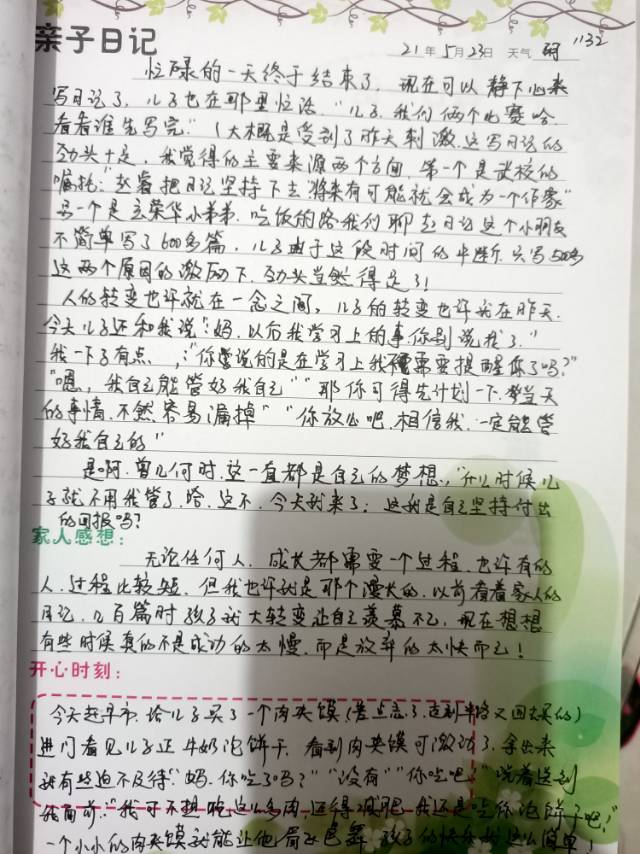 亲子日记
21年5月23日 天气 晴 1132
忙碌的一天终于结束了，现在可以静下心来
写日记了，儿子也在那里忙活，"儿子，我们两个比赛哈
看看谁先写完"（大概是受到了昨天刺激，这写日记的
劲头十足，我觉得的主要来源两个方面，第一个是武校的
嘱托："赵 把日记坚持下去，将来有可能就会成为一个作家"
另一个是 荣华小弟弟，吃饭的路我们聊起日记这个小朋友
不简单写了600多篇，儿子由于这段时间的中断，只写500多
这两个原因的激励下，劲头当然得足了！
人的转变也许就在一念之间，儿子的转变也许就在昨天．
今天儿子还和我说："妈，以后我学习上的事你别说我了．"
我一下子有点 ，："你曾说的是在学习上我不需要提醒你了吗？"
"嗯，我自己能管好我自己" "那你可得先计划一下，当天
的事情，不然容易漏掉" "你放心吧，相信我，一定能管
好我自己的"
是啊，曾几何时，这一直都是自己的梦想，"什么时候儿
子就不用我管了，哈，这不，今天就来了；这就是自己坚持付出
的回报吗？
家人感想：
无论任何人，成长都需要一个过程，也许有的
人，过程比较短，但我也许就是那个漫长的，以前看着家人的
日记，几百篇时孩子就大转变让自己羡慕不已，现在想想
有些时候真的不是成功的太慢，而是放弃的太快而已！
开心时刻：
今天赶早市，给儿子买了一个肉夹馍（差点忘了，走到半路又回去买的）
进门看见儿子正 牛奶泡饼干，看到肉夹馍可激动了，拿出来
就有些迫不及待："妈，你吃了吗？" "没有" "你吃吧？"说着送到
我面前："我可不想吃这么多肉，还得减肥，我还是吃你泡饼子吧！"
一个小小的肉夹馍就能让他眉飞色舞，孩子的快乐就这么简单！